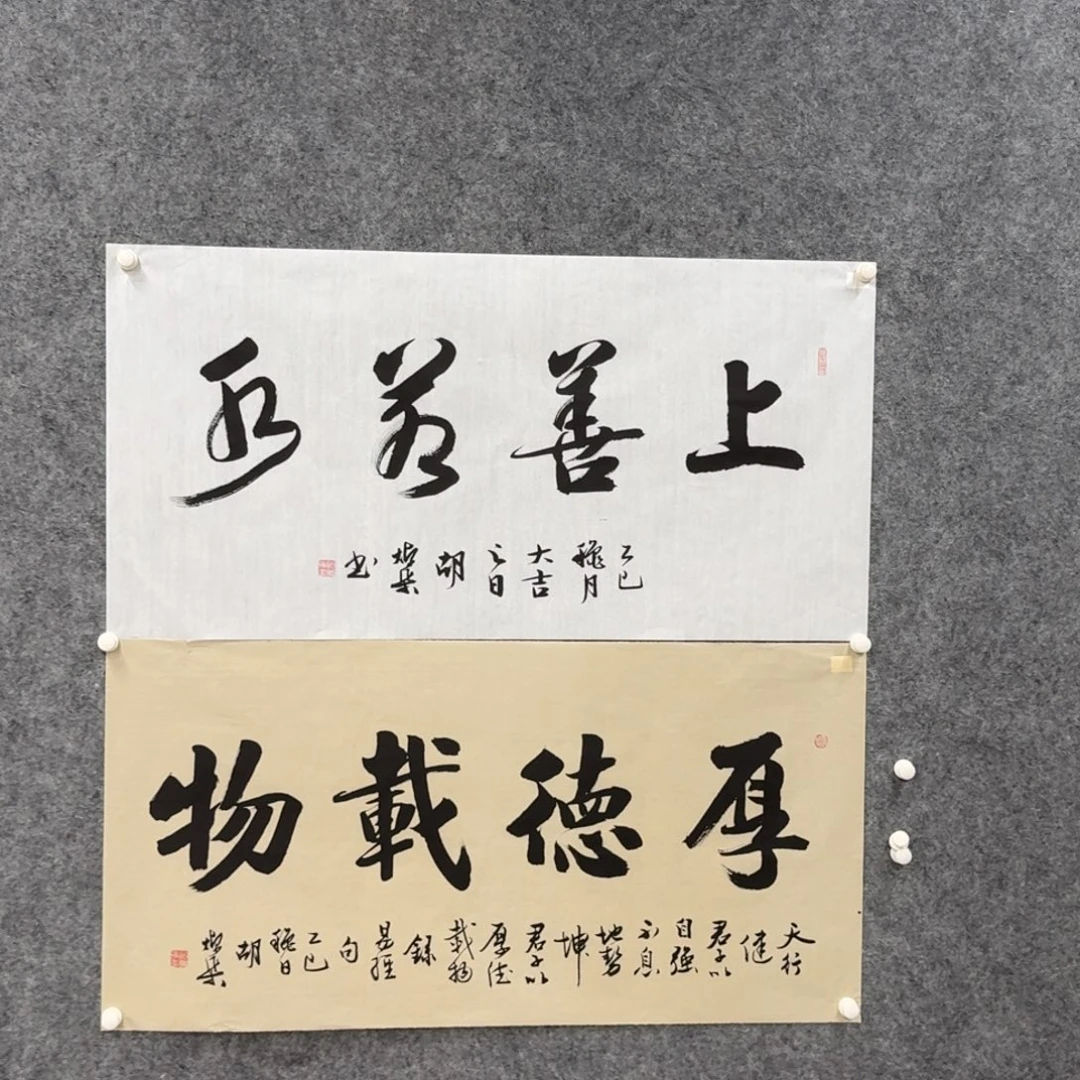 上善若水
乙巳穐月大吉之日胡燦书
厚德載物
天行健君子以自強不息地勢坤君子以厚德載物錄易經句乙巳穐日胡燦